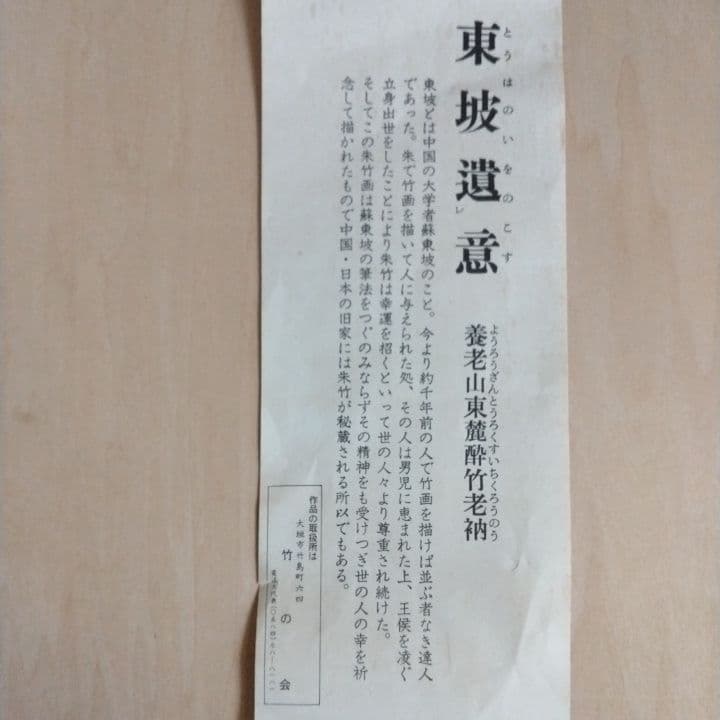 とうはのいをのこす
東坡遺レ意
ようろうざんとうろくすいちくろうのう
養老山東麓酔竹老衲
東坡とは中国の大学者蘇東坡のこと。今より約千年前の人で竹画を描けば並ぶ者なき達人
であった。朱で竹画を描いて人に与えられた処、その人は男児に恵まれた上、王侯を凌ぐ
立身出世をしたことにより朱竹は幸運を招くといって世の人々より尊重され続けた。
そしてこの朱竹画は蘇東坡の筆法をつぐのみならずその精神をも受けつぎ世の人の幸を祈
念して描かれたもので中国・日本の旧家には朱竹が秘蔵される所以でもある。
作品の取扱所は
大垣市竹島町六四
竹の会